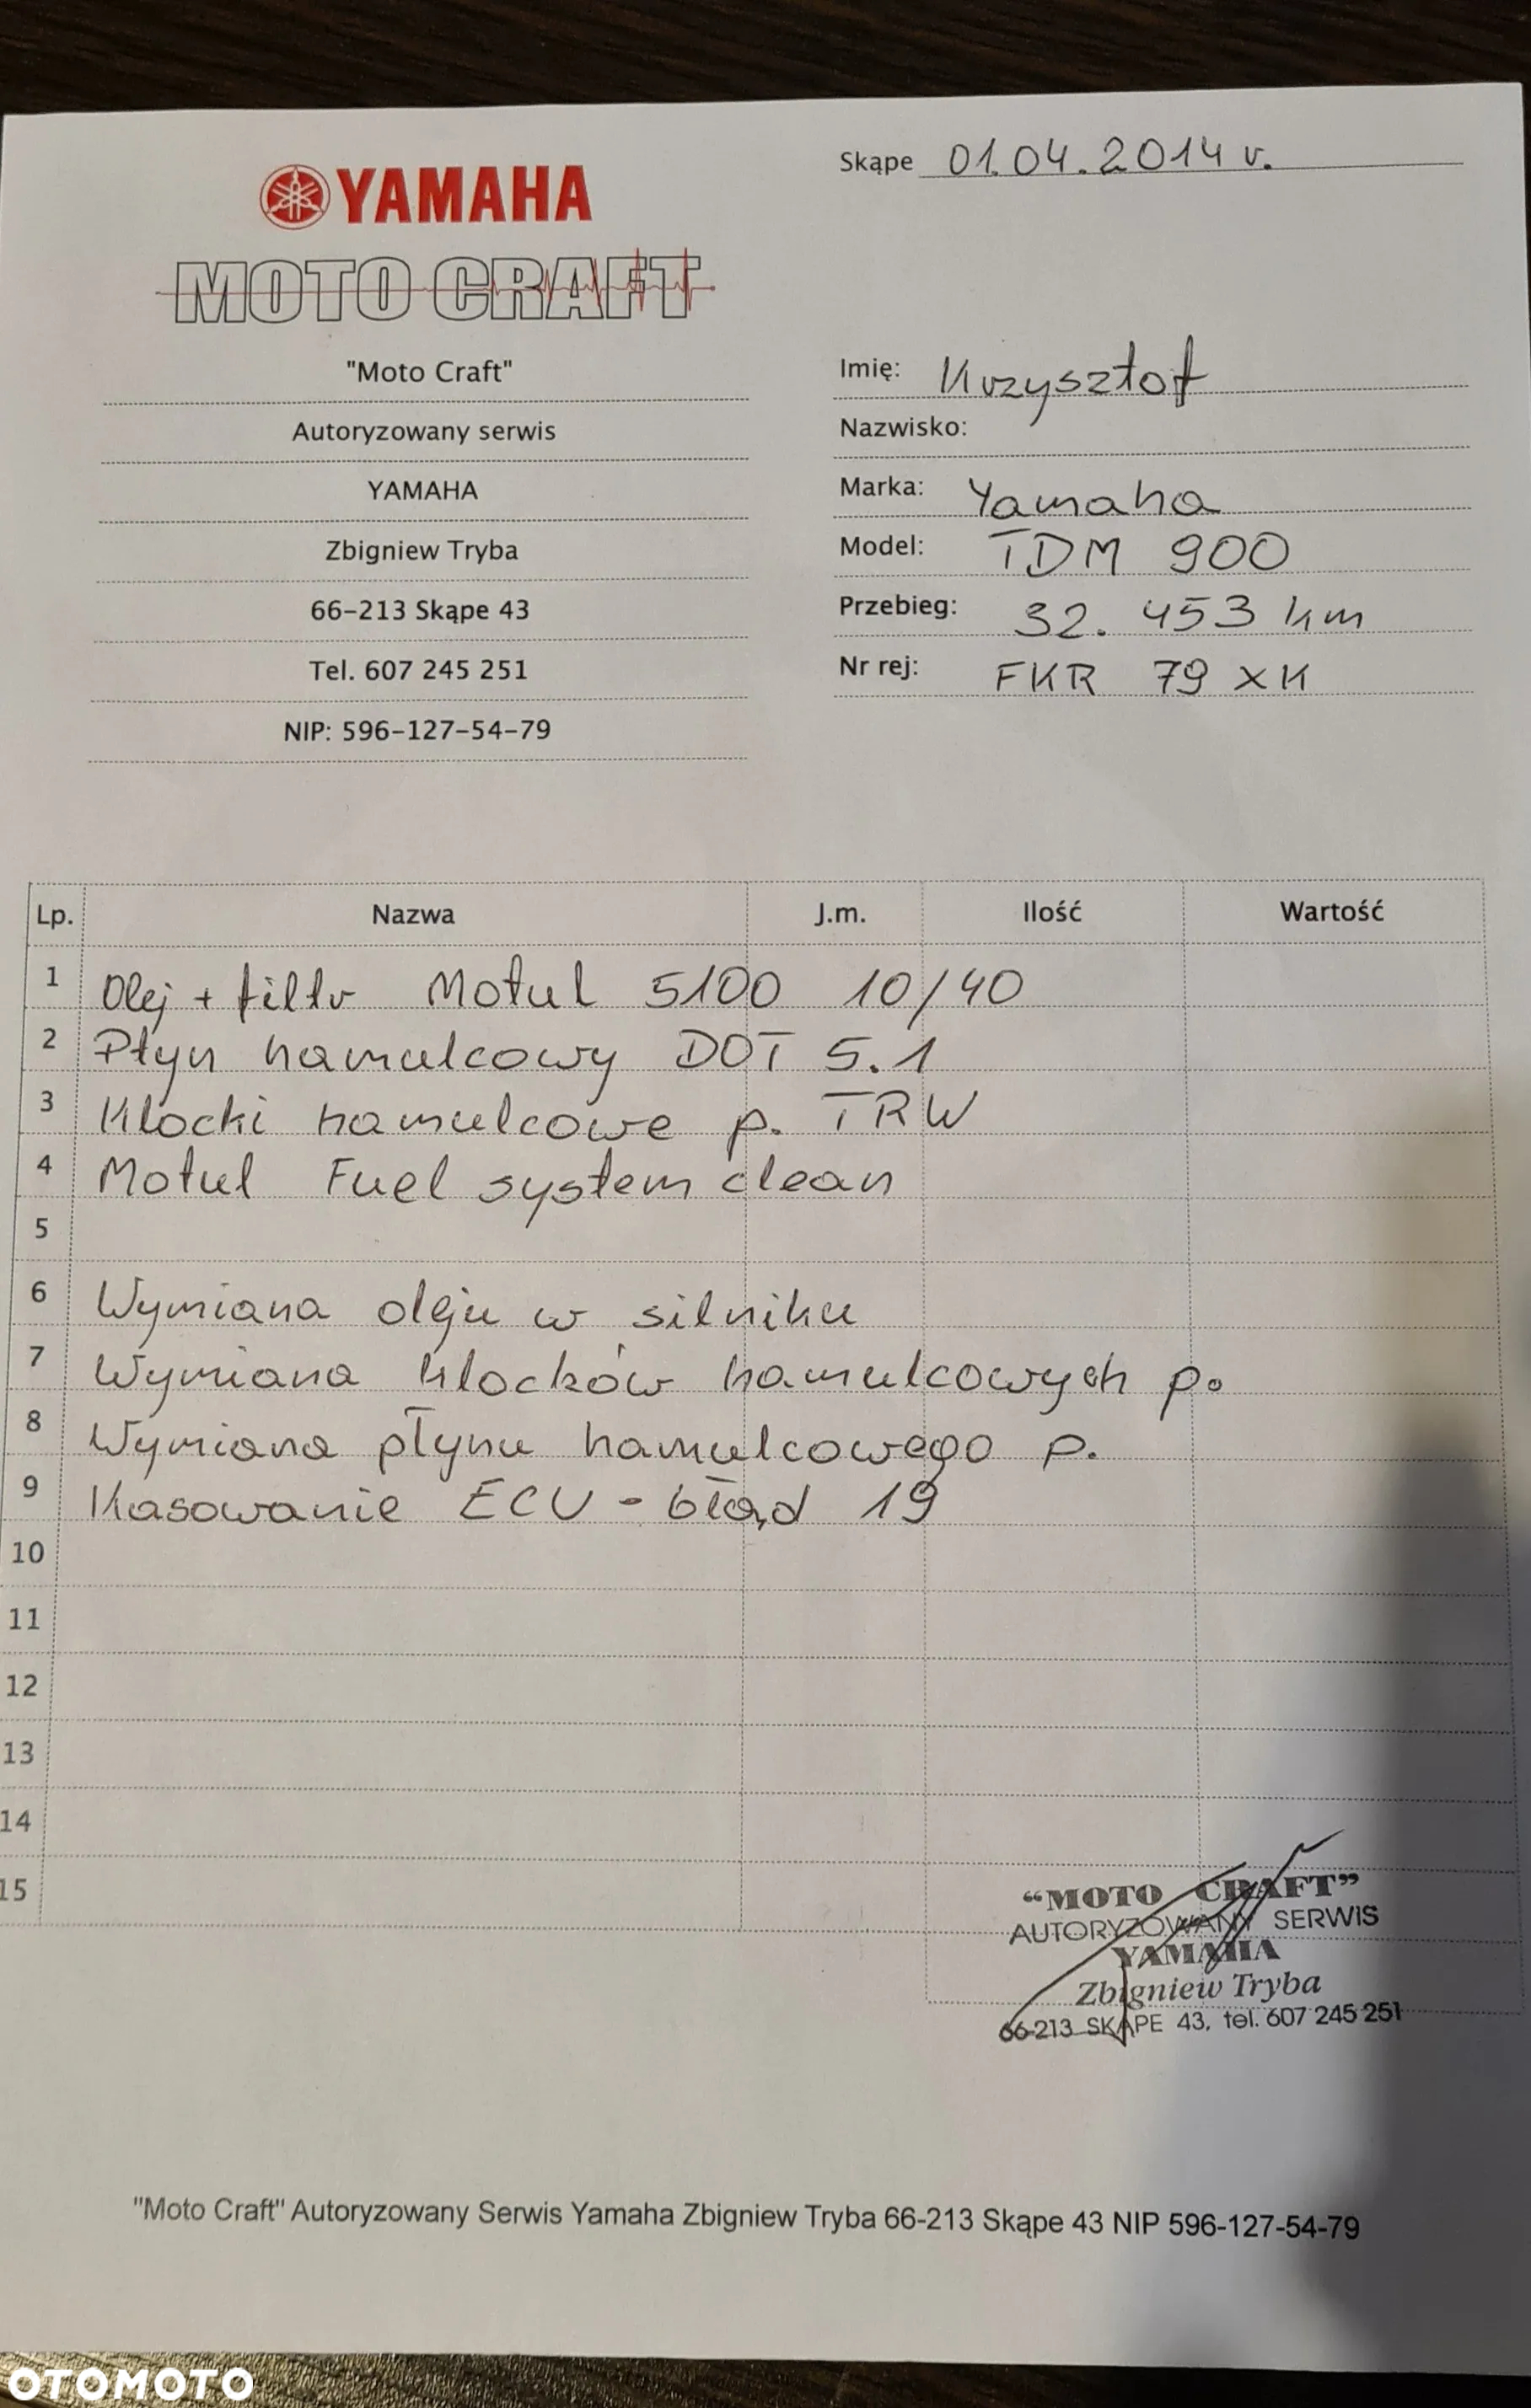 YAMAHA
MOTO CRAFT
"Moto Craft"
Autoryzowany serwis
YAMAHA
Zbigniew Tryba
66-213 Skąpe 43
Tel. 607 245 251
NIP: 596-127-54-79
Skąpe 01.04.2014 r.
Imię: Krzysztof
Nazwisko:
Marka: Yamaha
Model: TDM 900
Przebieg: 32.453 km
Nr rej: FKR 79 XK
Lp. Nazwa J.m. Ilość Wartość
1 Olej + filtr Motul 5100 10/40
2 Płyn hamulcowy DOT 5.1
3 Klocki hamulcowe p. TRW
4 Motul Fuel system clean
5
6 Wymiana oleju w silniku
7 Wymiana klocków hamulcowych p.
8 Wymiana płynu hamulcowego p.
9 Kasowanie ECU - błąd 19
10
11
12
13
14
15
"MOTO CRAFT"
AUTORYZOWANY SERWIS
YAMAHA
Zbigniew Tryba
66-213 SKĄPE 43, tel. 607 245 251
"Moto Craft" Autoryzowany Serwis Yamaha Zbigniew Tryba 66-213 Skąpe 43 NIP 596-127-54-79
OTOMOTO